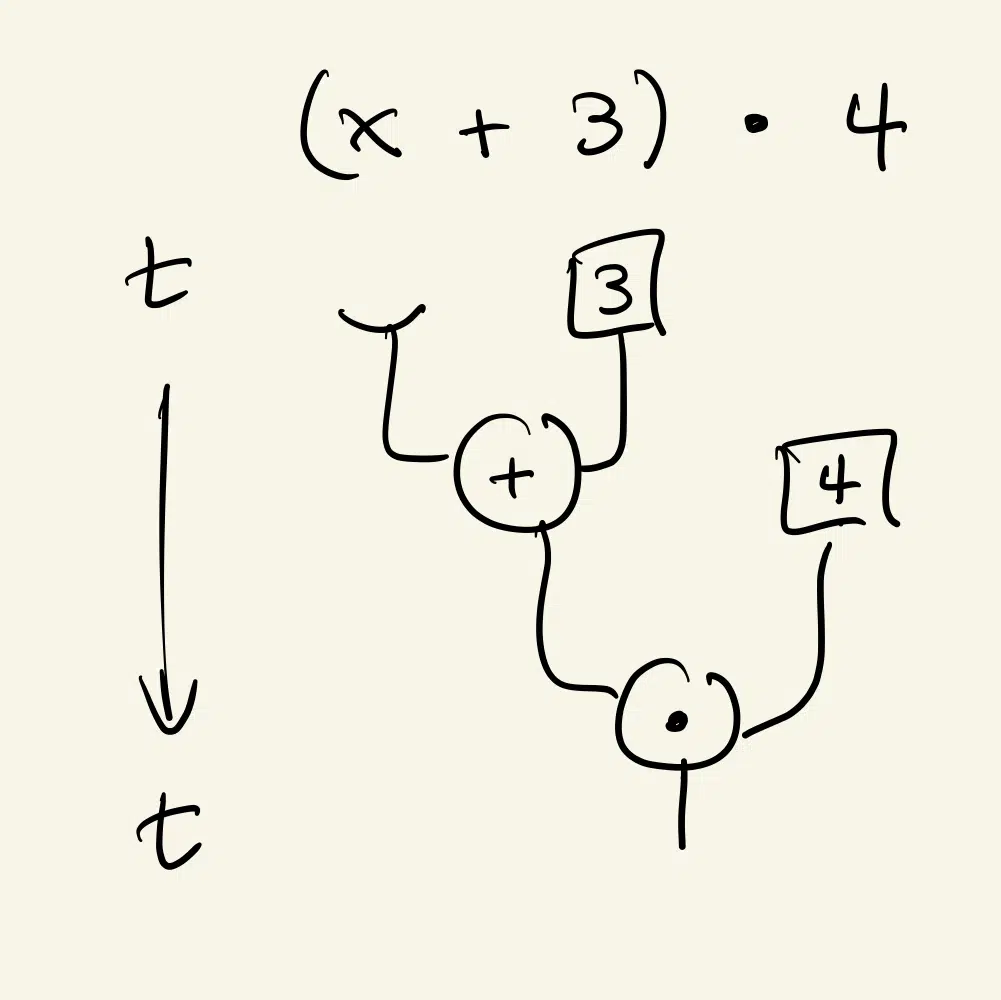 (x + 3) • 4
t
3
+
4
•
t